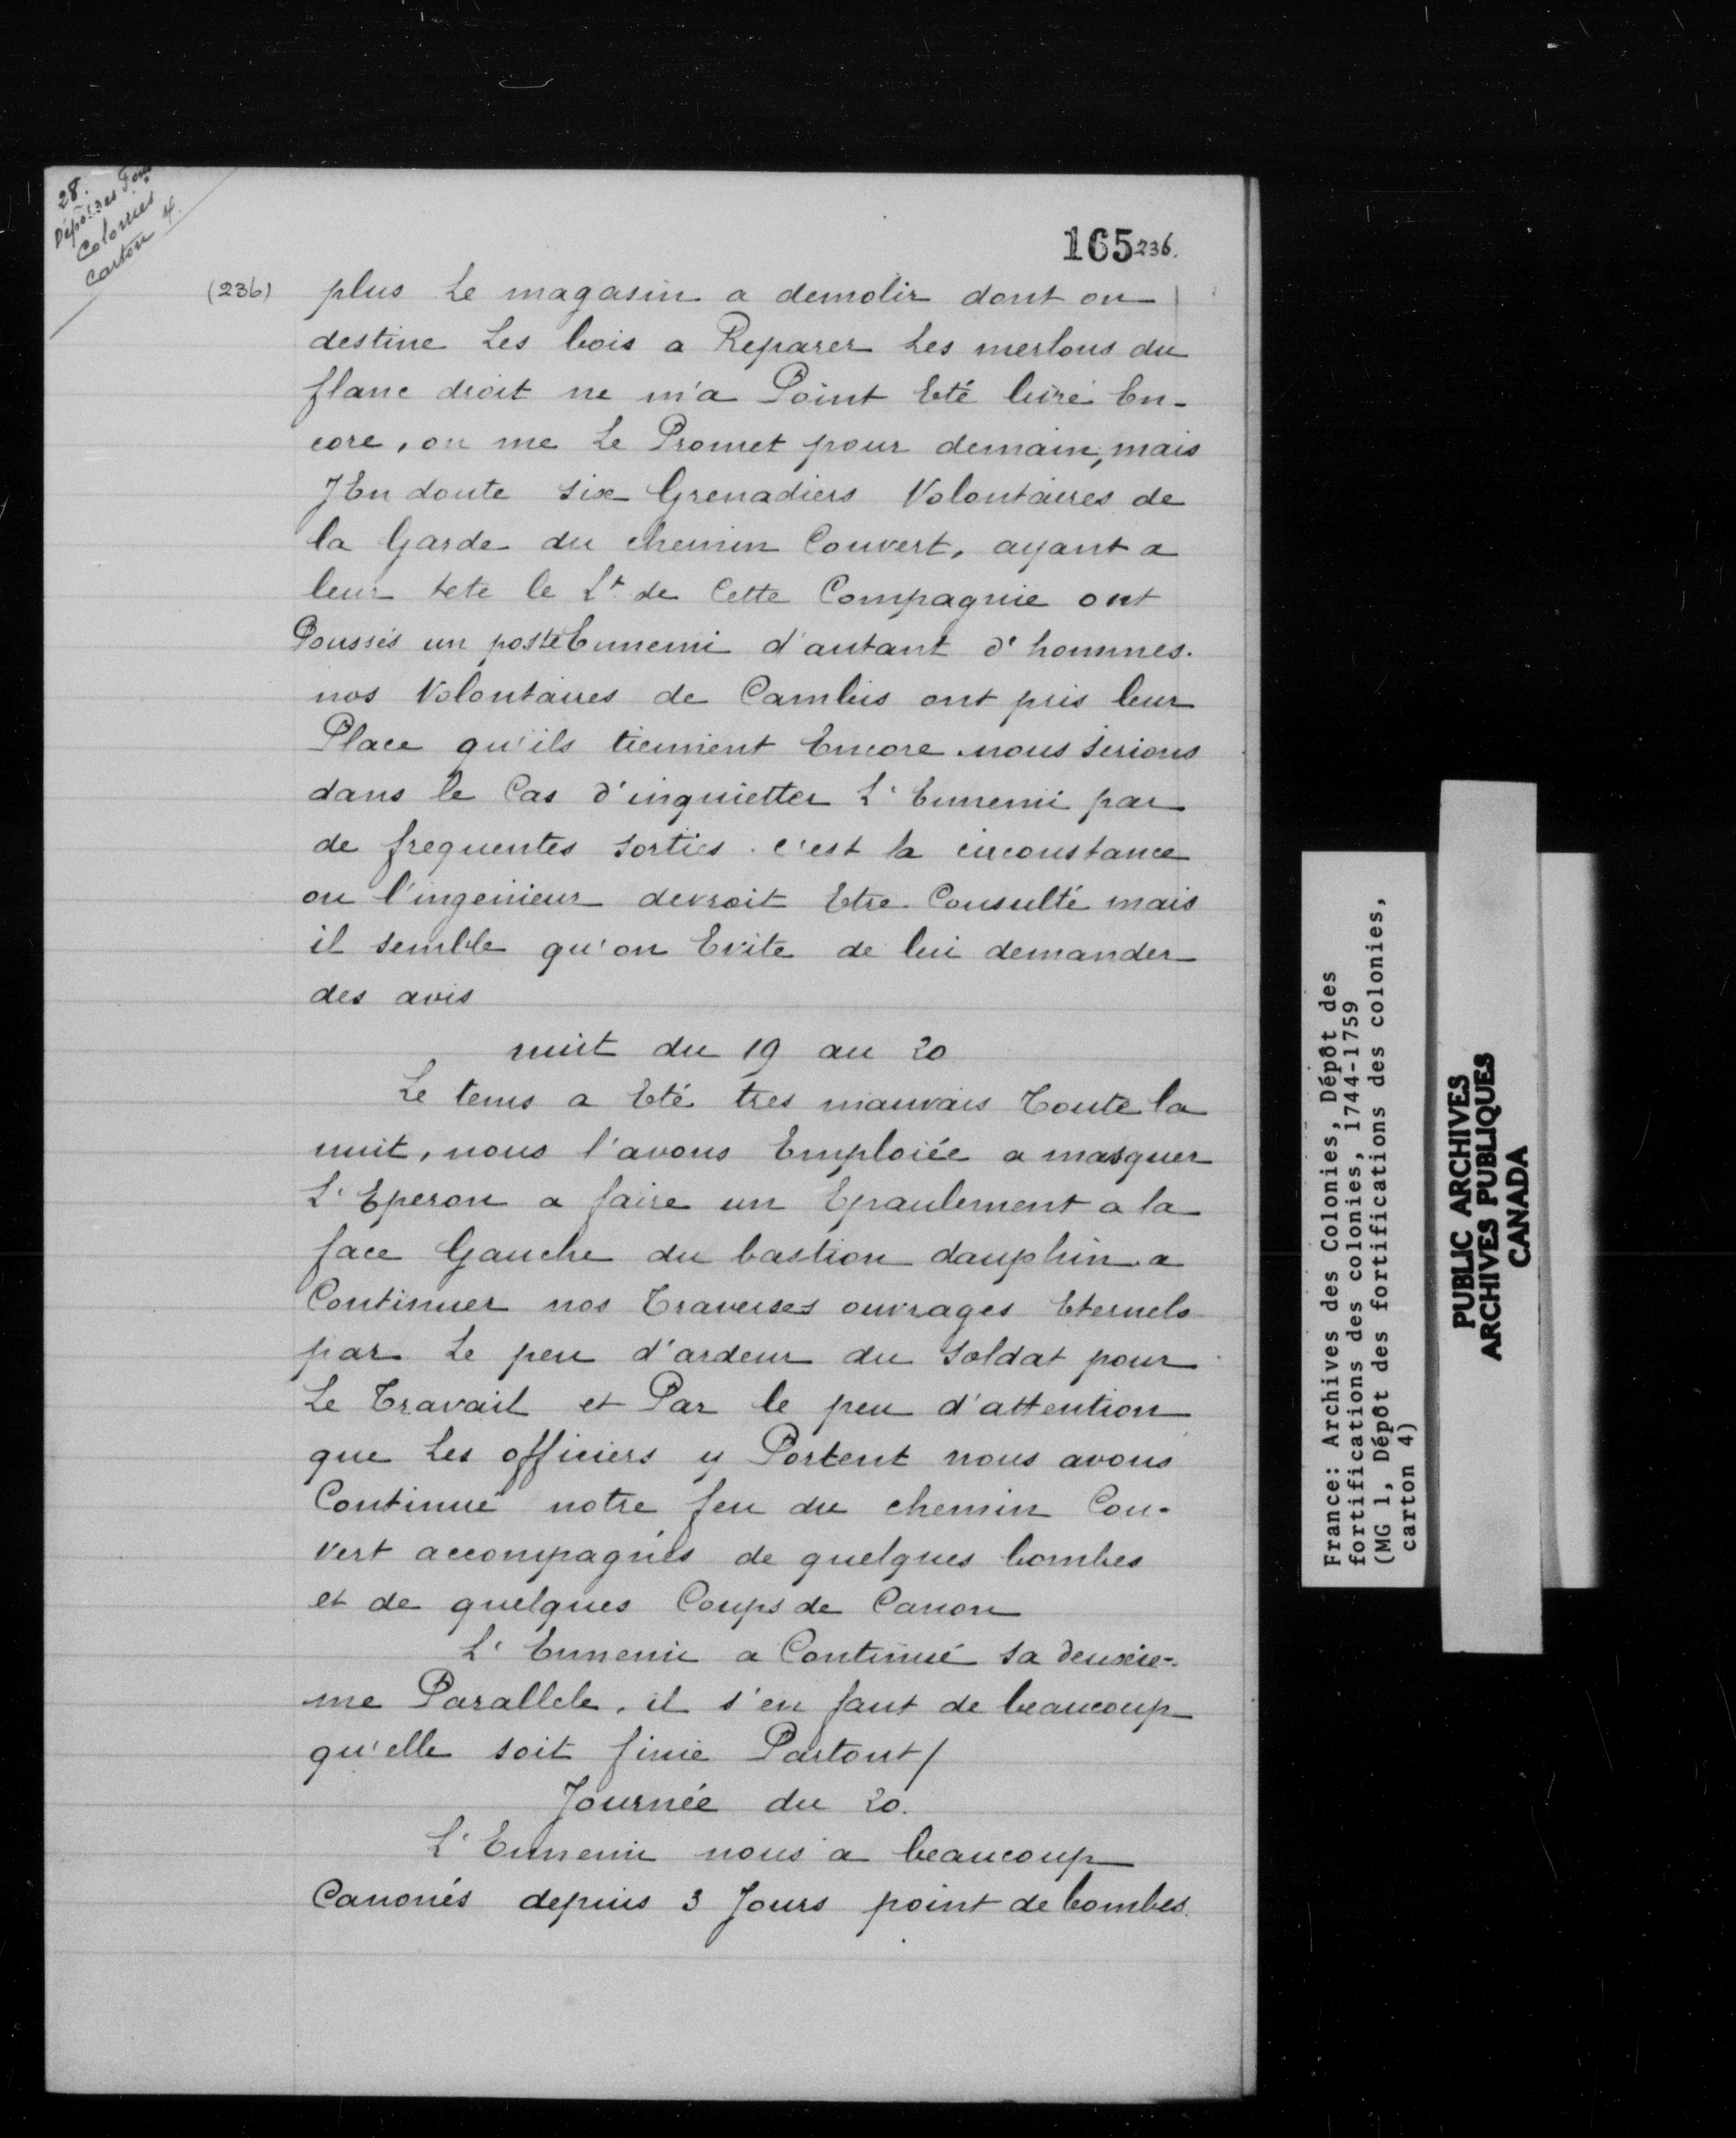 28.
Dépôt des Fons
Colonies
Carton 4.
165 236.
(236) plus Le magasin a demolir dont on
destine Les bois a Reparer Les merlons du
flanc droit ne m'a Point Eté livré En-
core, on me Le Promet pour demain, mais
JEn doute six Grenadiers Volontaires de
la Garde du chemin Couvert, ayant a
leur tete le Lt. de Cette Compagnie ont
Poussés un poste Ennemi d'autant d'hommes.
nos Volontaires de Cambis ont pris leur
Place qu'ils tiennent Encore. nous serions
dans le Cas d'inquietter L'Ennemi par
de frequentes sorties. c'est la circonstance
ou l'ingenieur devroit Etre Consulté mais
il semble qu'on Evite de lui demander
des avis
nuit du 19 au 20
Le tems a Eté tres mauvais Toute la
nuit, nous l'avons Emploiée a masquer
L'Eperon a faire un Epaulement a la
face Gauche du bastion dauphin a
Continuer nos Traverses ouvrages Eternels
par Le peu d'ardeur du Soldat pour
Le Travail et Par le peu d'attention
que Les officiers y Portent nous avons
Continué notre feu du chemin Cou-
vert accompagnés de quelques bombes
et de quelques Coups de Canon
L'Ennemi a Continué sa deuxie-
me Parallele. il s'en faut de beaucoup
qu'elle soit finie Partout /
Journée du 20.
L'Ennemi nous a beaucoup
Canonés depuis 3 Jours point de bombes.
France: Archives des Colonies, Dépôt des
fortifications des colonies, 1744-1759
(MG 1, Dépôt des fortifications des colonies,
carton 4)
PUBLIC ARCHIVES
ARCHIVES PUBLIQUES
CANADA